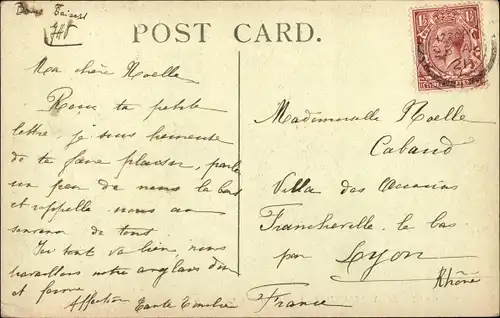 POST CARD.
Ma chère Noelle
Reçu ta petite
lettre, je suis heureuse
de te faire plaisir, parle
un peu de nous là bas
et rappelle nous au
souvenir de tous.
Ici tout va bien nous
travaillons notre anglais
et ferme
Affection Tante
Mademoiselle Noelle
Cabaud
Villa des Acacias
Francheville le bas
par Lyon
Rhône
France